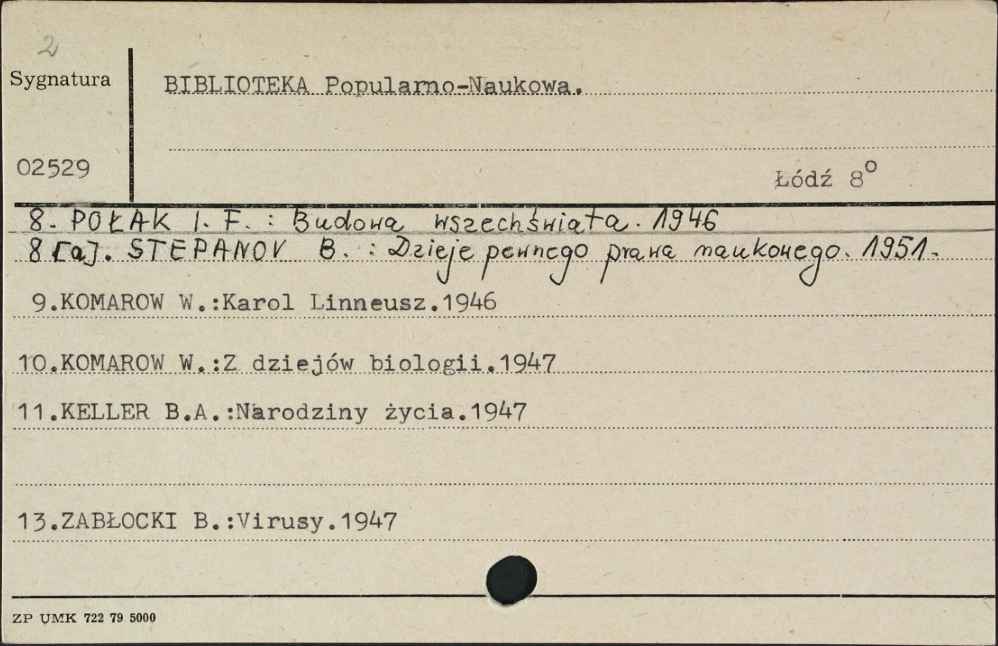 2
Sygnatura
BIBLIOTEKA Popularno-Naukowa.
02529
Łódź 8°
8. POŁAK I. F. : Budowa wszechświata. 1946
8[a]. STEPANOV B. : Dzieje pewnego prawa naukowego. 1951.
9.KOMAROW W.:Karol Linneusz.1946
10.KOMAROW W.:Z dziejów biologii.1947
11.KELLER B.A.:Narodziny życia.1947
13.ZABŁOCKI B.:Virusy.1947
ZP UMK 722 79 5000